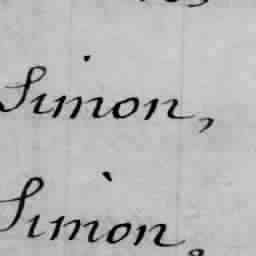 Simon,
Simon,